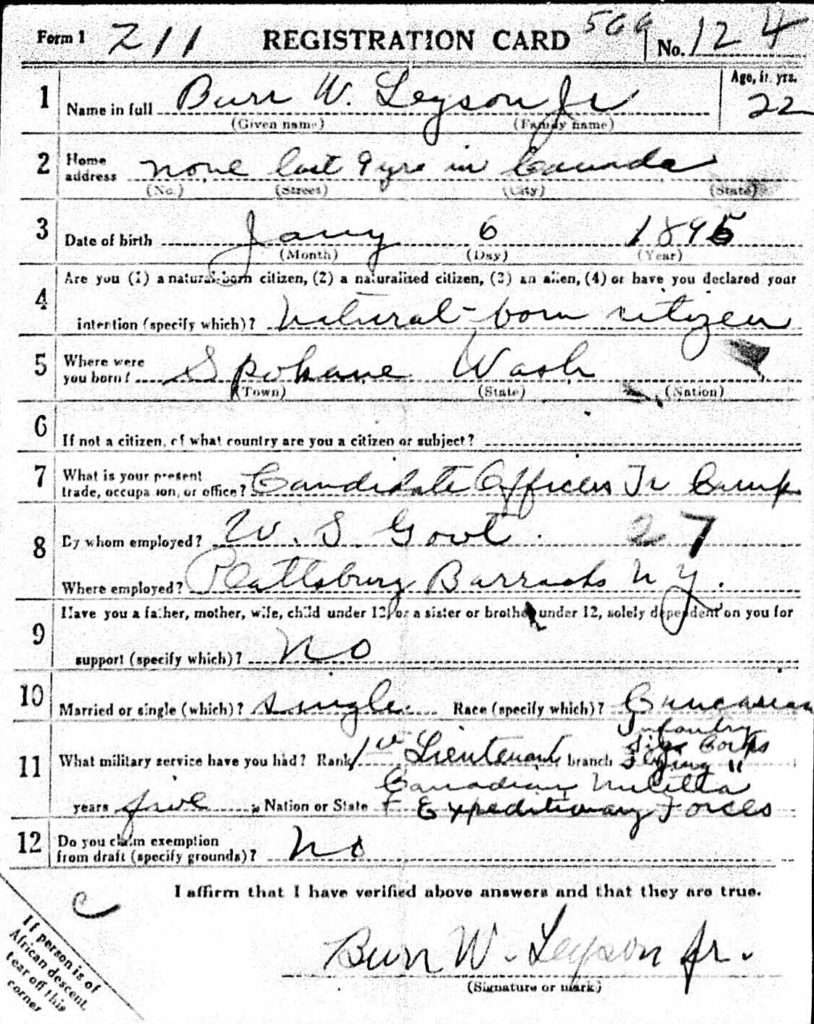 Form 1 211 REGISTRATION CARD 506 No. 124
1 Name in full Burr W. Leyson Jr Age, in yrs. 22
(Given name) (Family name)
2 Home address none last 9 yrs in Canada
(No.) (Street) (City) (State)
3 Date of birth Jany 6 1895
(Month) (Day) (Year)
Are you (1) a natural-born citizen, (2) a naturalized citizen, (3) an alien, (4) or have you declared your
4 intention (specify which)? natural-born citizen
5 Where were you born? Spokane Wash
(Town) (State) (Nation)
6 If not a citizen, of what country are you a citizen or subject?
7 What is your present trade, occupation, or office? Candidate Officers Tr Camp
8 By whom employed? U. S. Govt. 27
Where employed? Plattsburg Barracks N Y.
9 Have you a father, mother, wife, child under 12, or a sister or brother under 12, solely dependent on you for
support (specify which)? No
10 Married or single (which)? single. Race (specify which)? Caucasian
11 What military service have you had? Rank 1st Lieutenant branch Infantry Sig. Corps Flying "
years five ; Nation or State Canadian Militia + Expeditionary Forces
12 Do you claim exemption from draft (specify grounds)? No
I affirm that I have verified above answers and that they are true.
C
Burr W. Leyson Jr.
(Signature or mark)
If person is of
African descent,
tear off this
corner